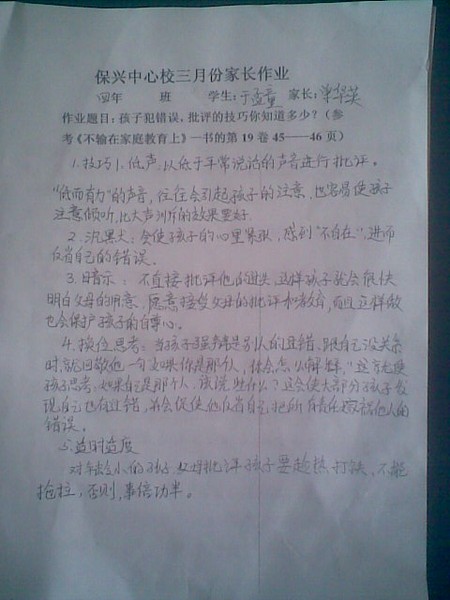 保兴中心校三月份家长作业
四年 班 学生：于孟童 家长：单华英
作业题目：孩子犯错误，批评的技巧你知道多少？（参
考《不输在家庭教育上》一书的第19卷45——46页）
1.技巧1.低声：以低于平常说话的声音进行批评。
“低而有力”的声音，往往会引起孩子的注意，也容易使孩子
注意倾听，比大声训斥的效果要好。
2.沉默：会使孩子的心里紧张，感到“不自在”，进而
反省自己的错误。
3.暗示：不直接批评他的过失，这样孩子就会很快
明白父母的用意，愿意接受父母的批评和教育，而且这样做
也会保护孩子的自尊心。
4.换位思考：当孩子强辩是别人的过错，跟自己没关系
时，就回敬他一句“如果你是那个人，你会怎么解释”，这就能使
孩子思考，如果自己是那个人，该说些什么？这会使大部分孩子发
现自己也有过错，并会促使他反省自己把所有责任推给他人的
错误。
5.适时适度
对年龄小的孩子，父母批评孩子要趁热打铁，不能
拖拉，否则，事倍功半。